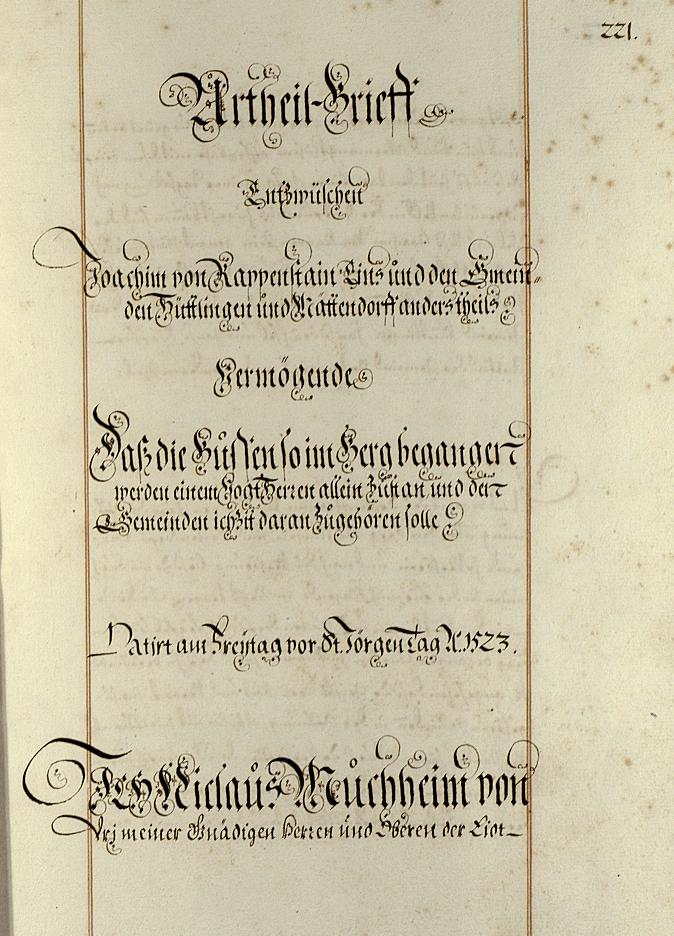 221.
Urtheil-Brieff.
Entzwüschen
Joachim von Rappenstain Eins und den Gmein-
den Hüttlingen und Mattendorff anders theils
Vermögende
Daß die Bůssen so im Berg begangen
werden einem Vogt Herren allein Zůstan und den
Gemeinden ichzit daran Zůgehören solle
Datirt am Freÿtag vor St. Jörgen Tag A.º 1523.
ICH Niclaus Můchheim von
Urj meiner Gnädigen Herren und Oberen der Eidt-